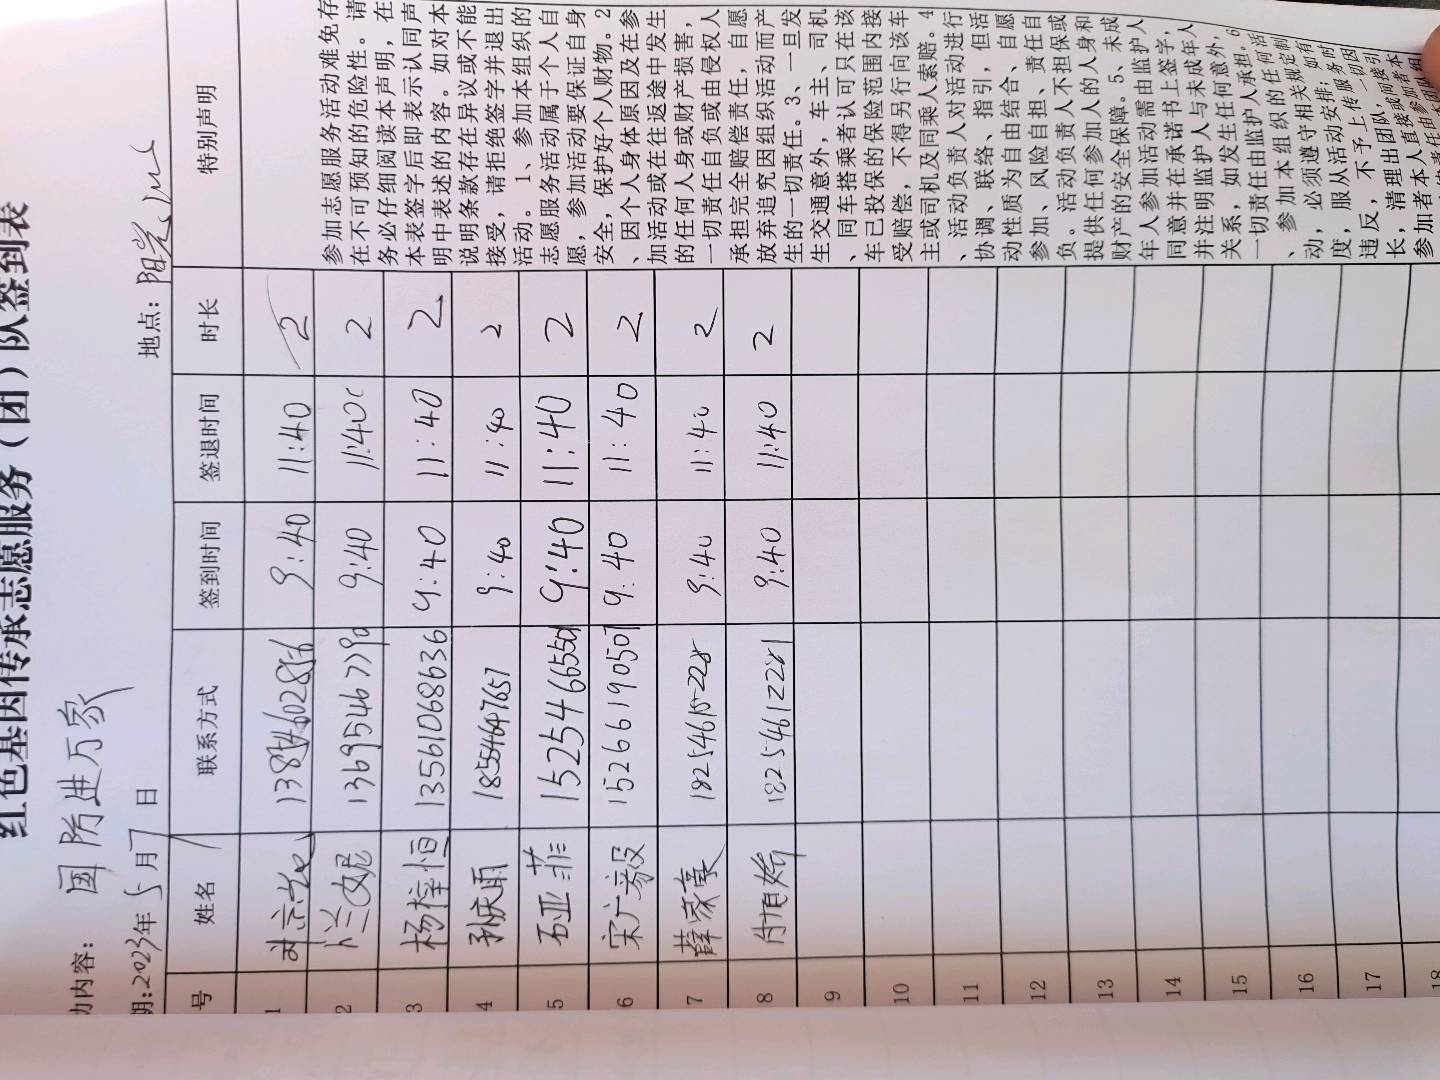 红色基因传承志愿服务（团）队签到表
动内容： 国防进万家
期:2023年 5月 7日 地点: 阳光
号 姓名 联系方式 签到时间 签退时间 时长 特别声明
1 9:40 11:40 2
2 兰妮 13695467790 9:40 11:40 2
3 杨梓恒 13561068636 9:40 11:40 2
4 孙庆雨 18554647657 9:40 11:40 2
5 石亚菲 9:40 11:40 2
6 宋广毅 15266190507 9:40 11:40 2
7 薛蒙豪 9:40 11:40 2
8 18254612281 9:40 11:40 2
9
10
11
12
13
14
15
16
17
18
参加志愿服务活动难免存
在不可预知的危险性，请
务必仔细阅读本声明，在
本表签字后即表示认同声
明中表述的内容。如对本
说明条款存在异议或不能
接受，请拒绝签字并退出
活动。1、参加本组织的
志愿服务活动属于个人自
愿，参加活动要保证自身
安全，保护好个人财物。2
、因个人身体原因及在参
加活动或在往返途中发生
的任何人身或财产损害，
一切责任自负或由侵权人
承担完全赔偿责任，自愿
放弃追究因组织活动而产
生的一切责任。3、一旦发
生交通意外，车主、司机
、同车搭乘者认可只在该
车已投保的保险范围内接
受赔偿，不得另行向该车
主或司机及同乘人索赔。4
、活动负责人对活动进行
协调、联络、指引，但活
动性质为自由结合、自愿
参加、风险自担、责任自
负。活动负责人不担保或
提供任何参加人的人身和
财产的安全保障。5、未成
年人参加活动需由监护人
同意并在承诺书上签字，
并注明监护人与未成年人
关系，如发生任何意外，
一切责任由监护人承担。6
、参加本组织的任何活
动，必须遵守相关规定制
度，服从活动安排；如有
违反，不予上传服务时
长，清理出团队，一切因
参加者本人直接或间接引